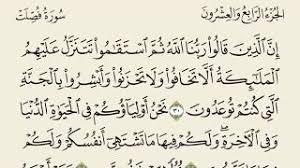 الجزء الرابع والعشرون سورة فصلت
إِنَّ الَّذِينَ قَالُوا رَبُّنَا اللَّهُ ثُمَّ اسْتَقَامُوا تَتَنَزَّلُ عَلَيْهِمُ
الْمَلَائِكَةُ أَلَّا تَخَافُوا وَلَا تَحْزَنُوا وَأَبْشِرُوا بِالْجَنَّةِ
الَّتِي كُنتُمْ تُوعَدُونَ ٣٠ نَحْنُ أَوْلِيَاؤُكُمْ فِي الْحَيَاةِ الدُّنْيَا
وَفِي الْآخِرَةِ وَلَكُمْ فِيهَا مَا تَشْتَهِي أَنفُسُكُمْ وَلَكُمْ